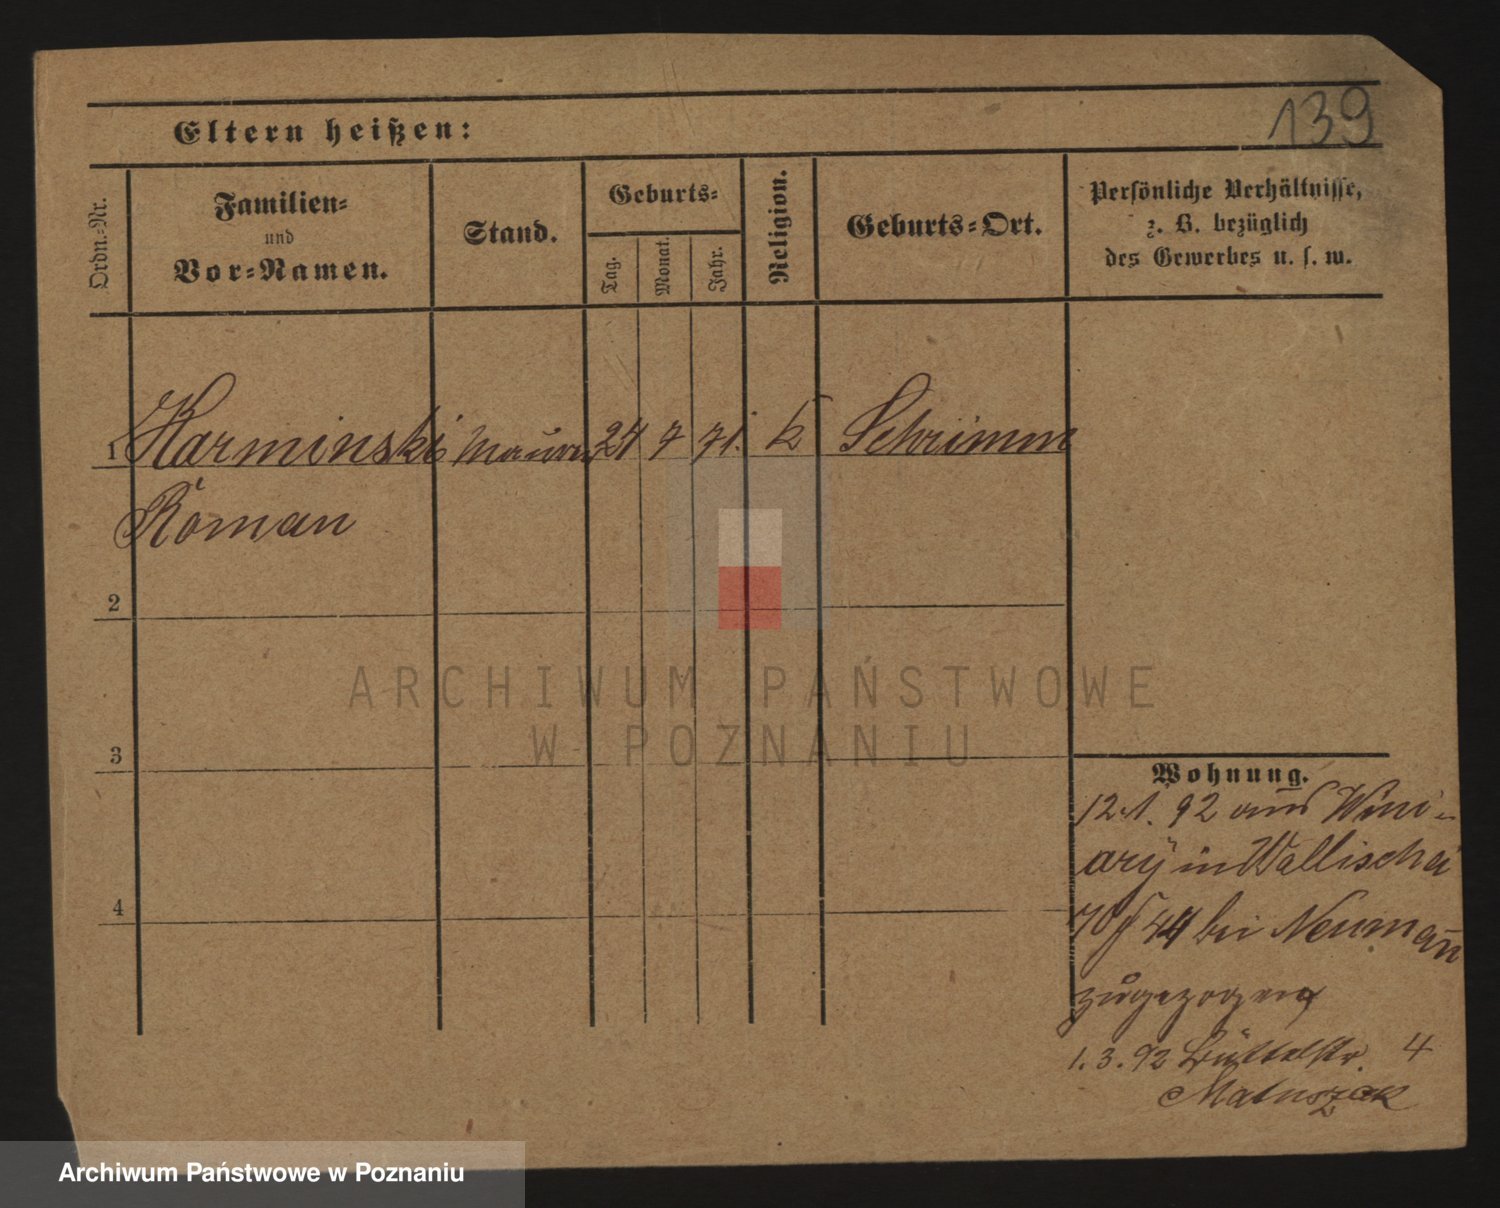 139
Eltern heißen:
Ordn.-Nr.
Familien-
und
Vor-Namen.
Stand.
Geburts-
Tag.
Monat.
Jahr.
Religion.
Geburts-Ort.
Persönliche Verhältnisse,
z. B. bezüglich
des Gewerbes u. s. w.
1 Karminski Maurer 24 7 71. k Schrimm
Roman
2
3
4
Wohnung.
12.1. 92 aus Wini-
ary in Wallischei
44 bei Neumann
zugezogen
1.3.92 Büttelstr. 4
Matuszak
ARCHIWUM PAŃSTWOWE
W POZNANIU
Archiwum Państwowe w Poznaniu